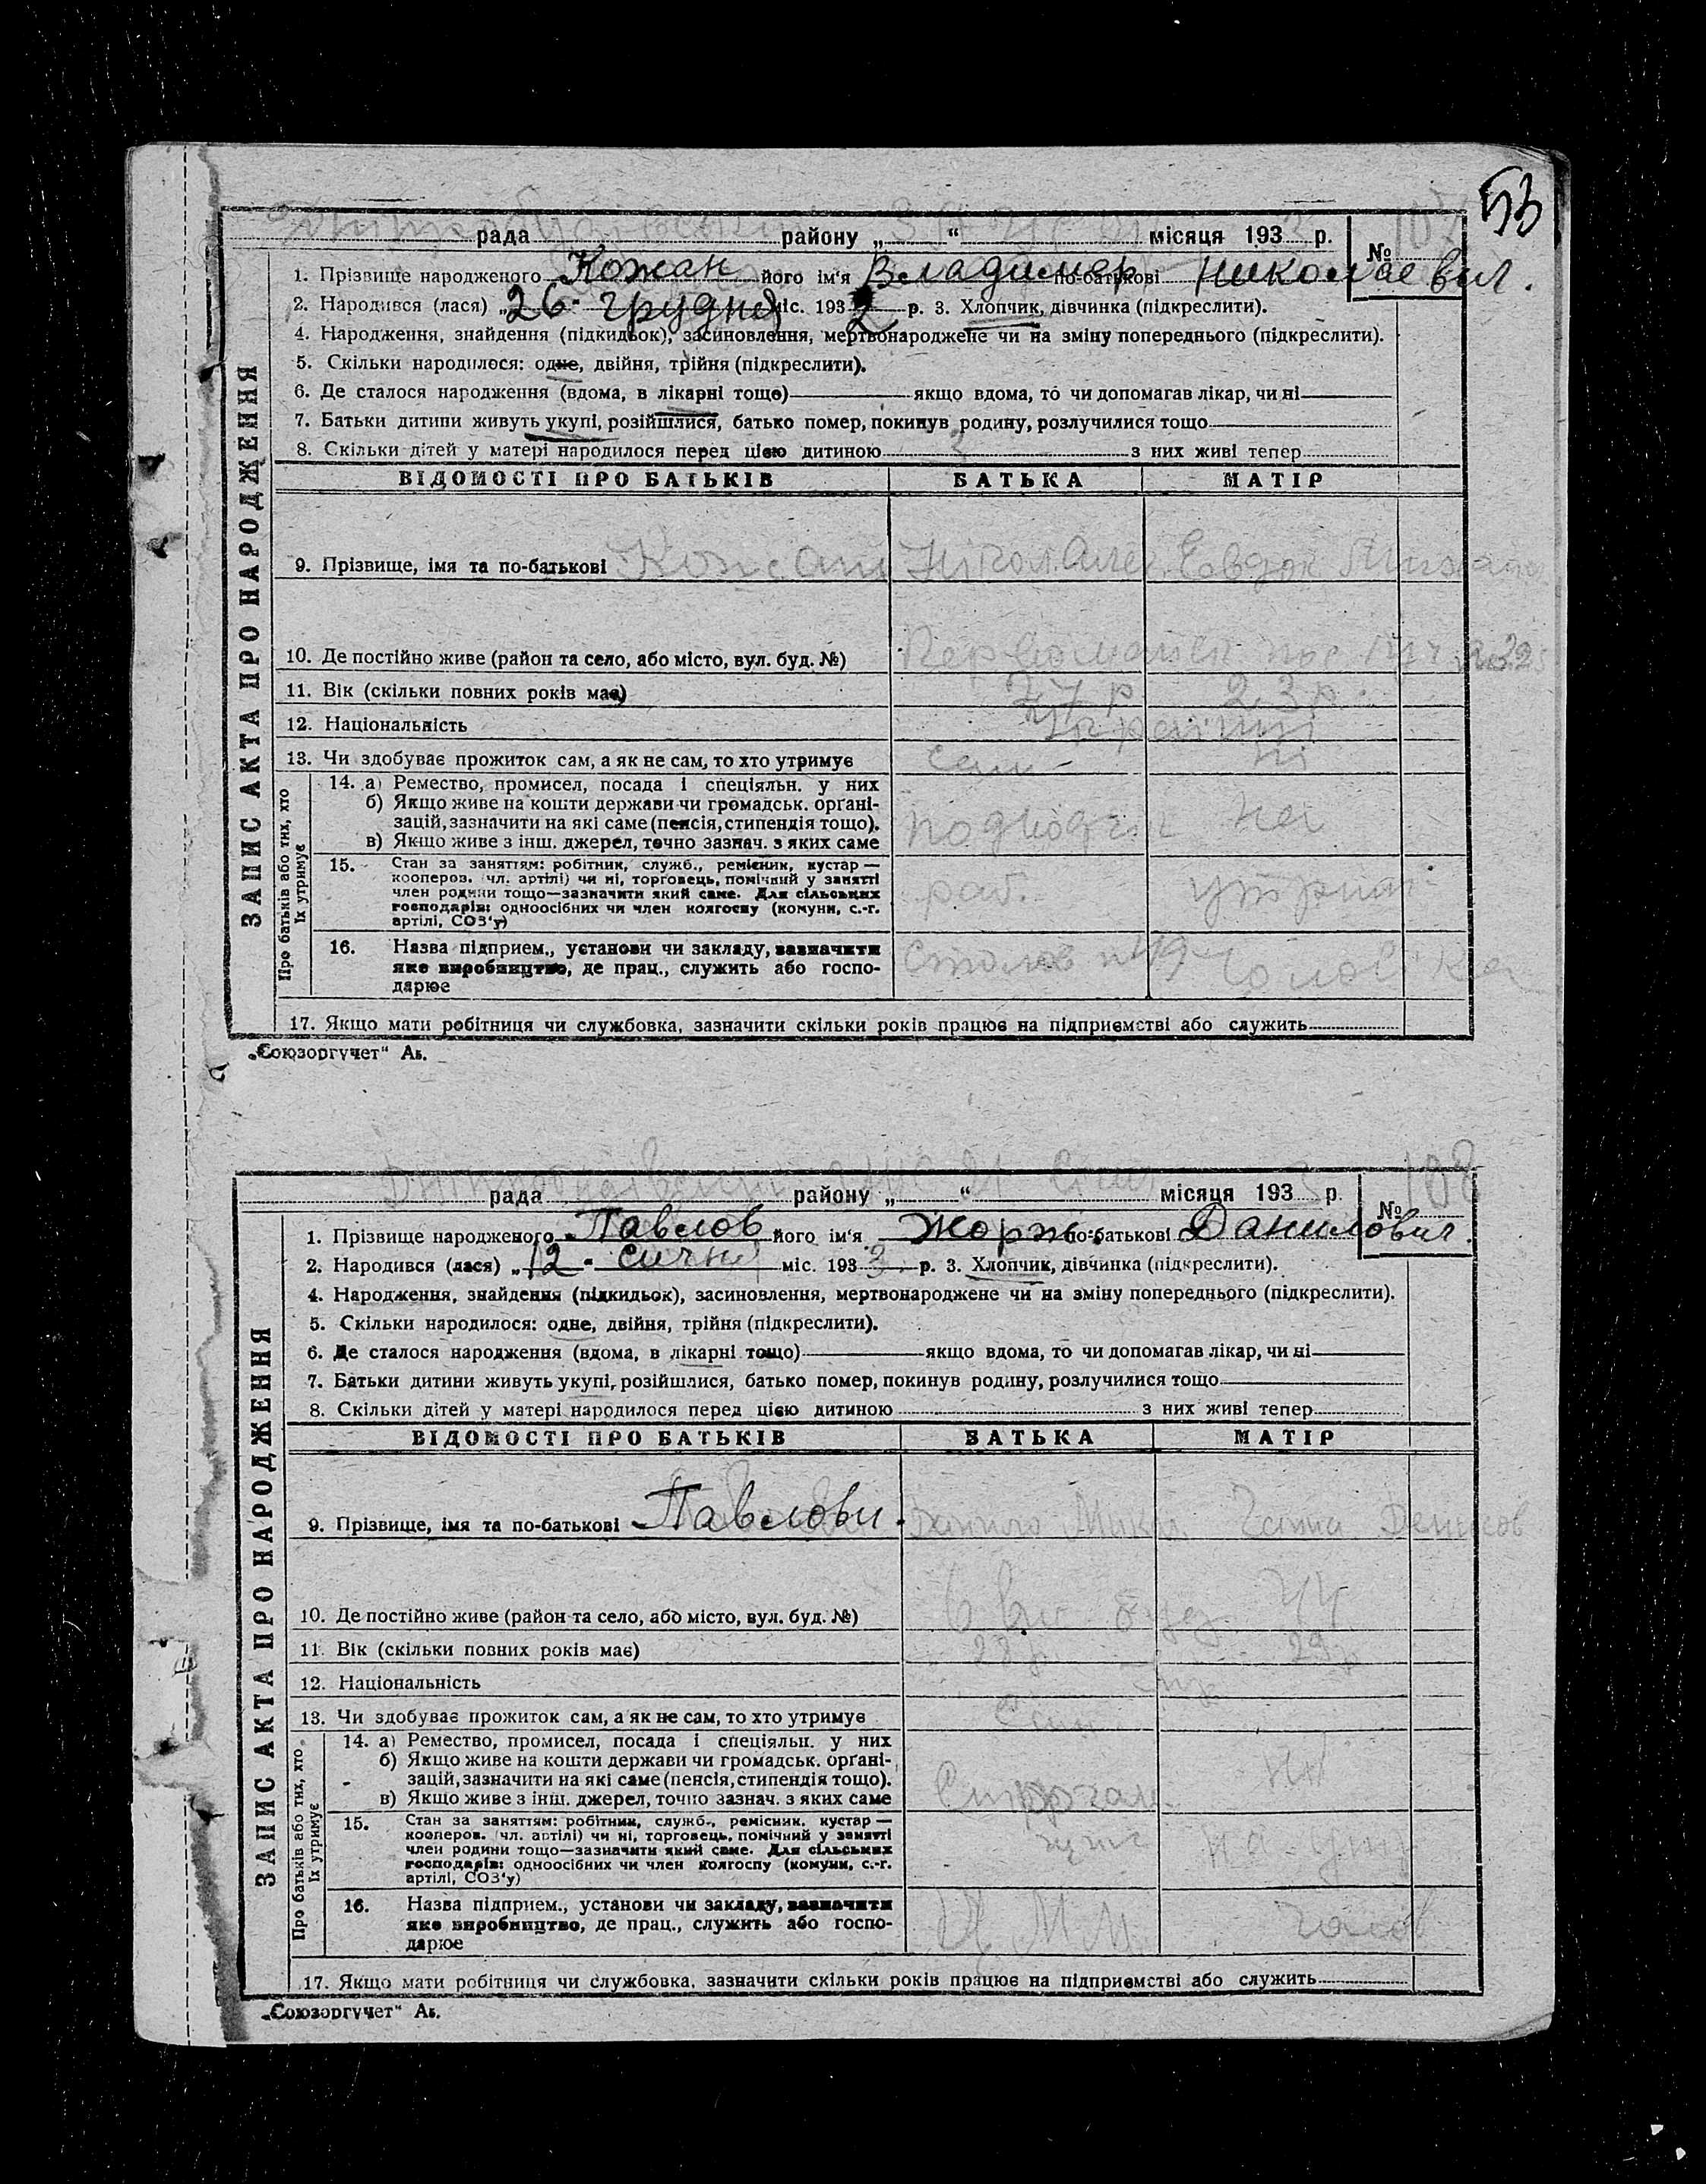 53
рада района „ “ місяця 193 р. №
1. Прізвище народженого Кожан його ім‘я Владимер по-батькові Николаевич.
2. Народився (лася) „26“ грудня міс. 1932 р. 3. Хлопчик, дівчинка (підкреслити).
4. Народження, знайдення (підкидьок), засиновлення, мертвонароджене чи на зміну попереднього (підкреслити).
5. Скільки народилося: одне, двійня, трійня (підкреслити).
6. Де сталося народження (вдома, в лікарні тощо) якщо вдома, то чи допомагав лікар, чи ні
7. Батьки дитини живуть укупі, розійшлися, батько помер, покинув родину, розлучилися тощо
8. Скільки дітей у матері народилося перед цією дитиною 3 з них живі тепер
ЗАПИС АКТА ПРО НАРОДЖЕННЯ
ВІДОМОСТІ ПРО БАТЬКІВ БАТЬКА МАТІР
9. Прізвище, імя та по-батькові Кожан
10. Де постійно живе (район та село, або місто, вул. буд. №)
11. Вік (скільки повних років має) 27 р 23 р.
12. Національність
13. Чи здобуває прожиток сам, а як не сам, то хто утримує сам ні
Про батьків або тих, хто їх утримує
14. а) Ремество, промисел, посада і спеціяльн. у них
б) Якщо живе на кошти держави чи громадськ. орґані-
зацій, зазначити на які саме (пенсія, стипендія тощо).
в) Якщо живе з інш. джерел, точно зазнач. з яких саме
на
15. Стан за заняттям: робітник, служб., ремісник, кустар —
кооперов. (чл. артілі) чи ні, торговець, помічний у занятті
член родини тощо—зазначити який саме. Для сільських
господарів: одноосібних чи член колгоспу (комуни, с.-г.
артілі, СОЗ‘у)
раб. утрим
16. Назва підприєм., установи чи закладу, зазначити
яке виробництво, де прац., служить або госпо-
дарює
чоловіка
17. Якщо мати робітниця чи службовка, зазначити скільки років працює на підприємстві або служить
„Союзоргучет“ Аб.
108
рада району „ “ місяця 193 р. №
1. Прізвище народженого Павлов його ім‘я Жорж по-батькові Данилович.
2. Народився (лася) „12“ січня міс. 1933 р. 3. Хлопчик, дівчинка (підкреслити).
4. Народження, знайдення (підкидьок), засиновлення, мертвонароджене чи на зміну попереднього (підкреслити).
5. Скільки народилося: одне, двійня, трійня (підкреслити).
6. Де сталося народження (вдома, в лікарні тощо) якщо вдома, то чи допомагав лікар, чи ні
7. Батьки дитини живуть укупі, розійшлися, батько помер, покинув родину, розлучилися тощо
8. Скільки дітей у матері народилося перед цією дитиною з них живі тепер
ЗАПИС АКТА ПРО НАРОДЖЕННЯ
ВІДОМОСТІ ПРО БАТЬКІВ БАТЬКА МАТІР
9. Прізвище, імя та по-батькові Павлови. Данило
10. Де постійно живе (район та село, або місто, вул. буд. №) буд. 44
11. Вік (скільки повних років має) 28 р 29 р
12. Національність
13. Чи здобуває прожиток сам, а як не сам, то хто утримує сам
Про батьків або тих, хто їх утримує
14. а) Ремество, промисел, посада і спеціяльн. у них
б) Якщо живе на кошти держави чи громадськ. орґані-
зацій, зазначити на які саме (пенсія, стипендія тощо).
в) Якщо живе з інш. джерел, точно зазнач. з яких саме
15. Стан за заняттям: робітник, служб., ремісник, кустар —
кооперов. (чл. артілі) чи ні, торговець, помічний у занятті
член родини тощо—зазначити який саме. Для сільських
господарів: одноосібних чи член колгоспу (комуни, с.-г.
артілі, СОЗ‘у)
на утр
16. Назва підприєм., установи чи закладу, зазначити
яке виробництво, де прац., служить або госпо-
дарює
чолов
17. Якщо мати робітниця чи службовка, зазначити скільки років працює на підприємстві або служить
„Союзоргучет“ Аб.